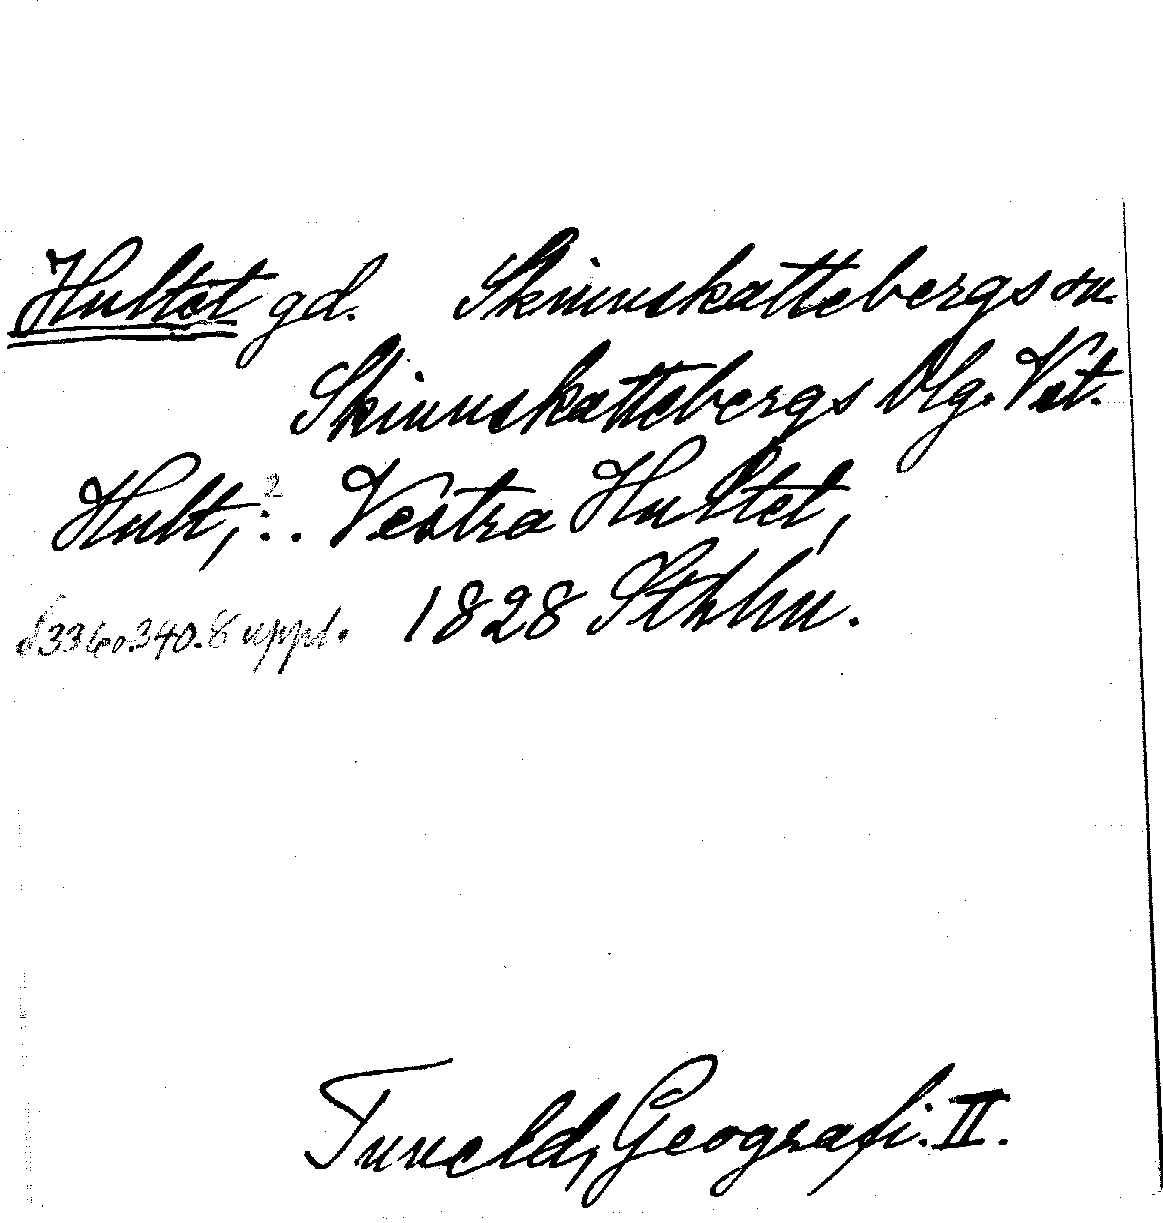 Hultet gd. Skinnskattebergs sn.
Skinnskattebergs blg. Vst.
Hult, 2 : . Vestra Hultet,
s 336 o 340. 8 uppl. 1828 Sthlm.
Tuneld, Geografi. II.